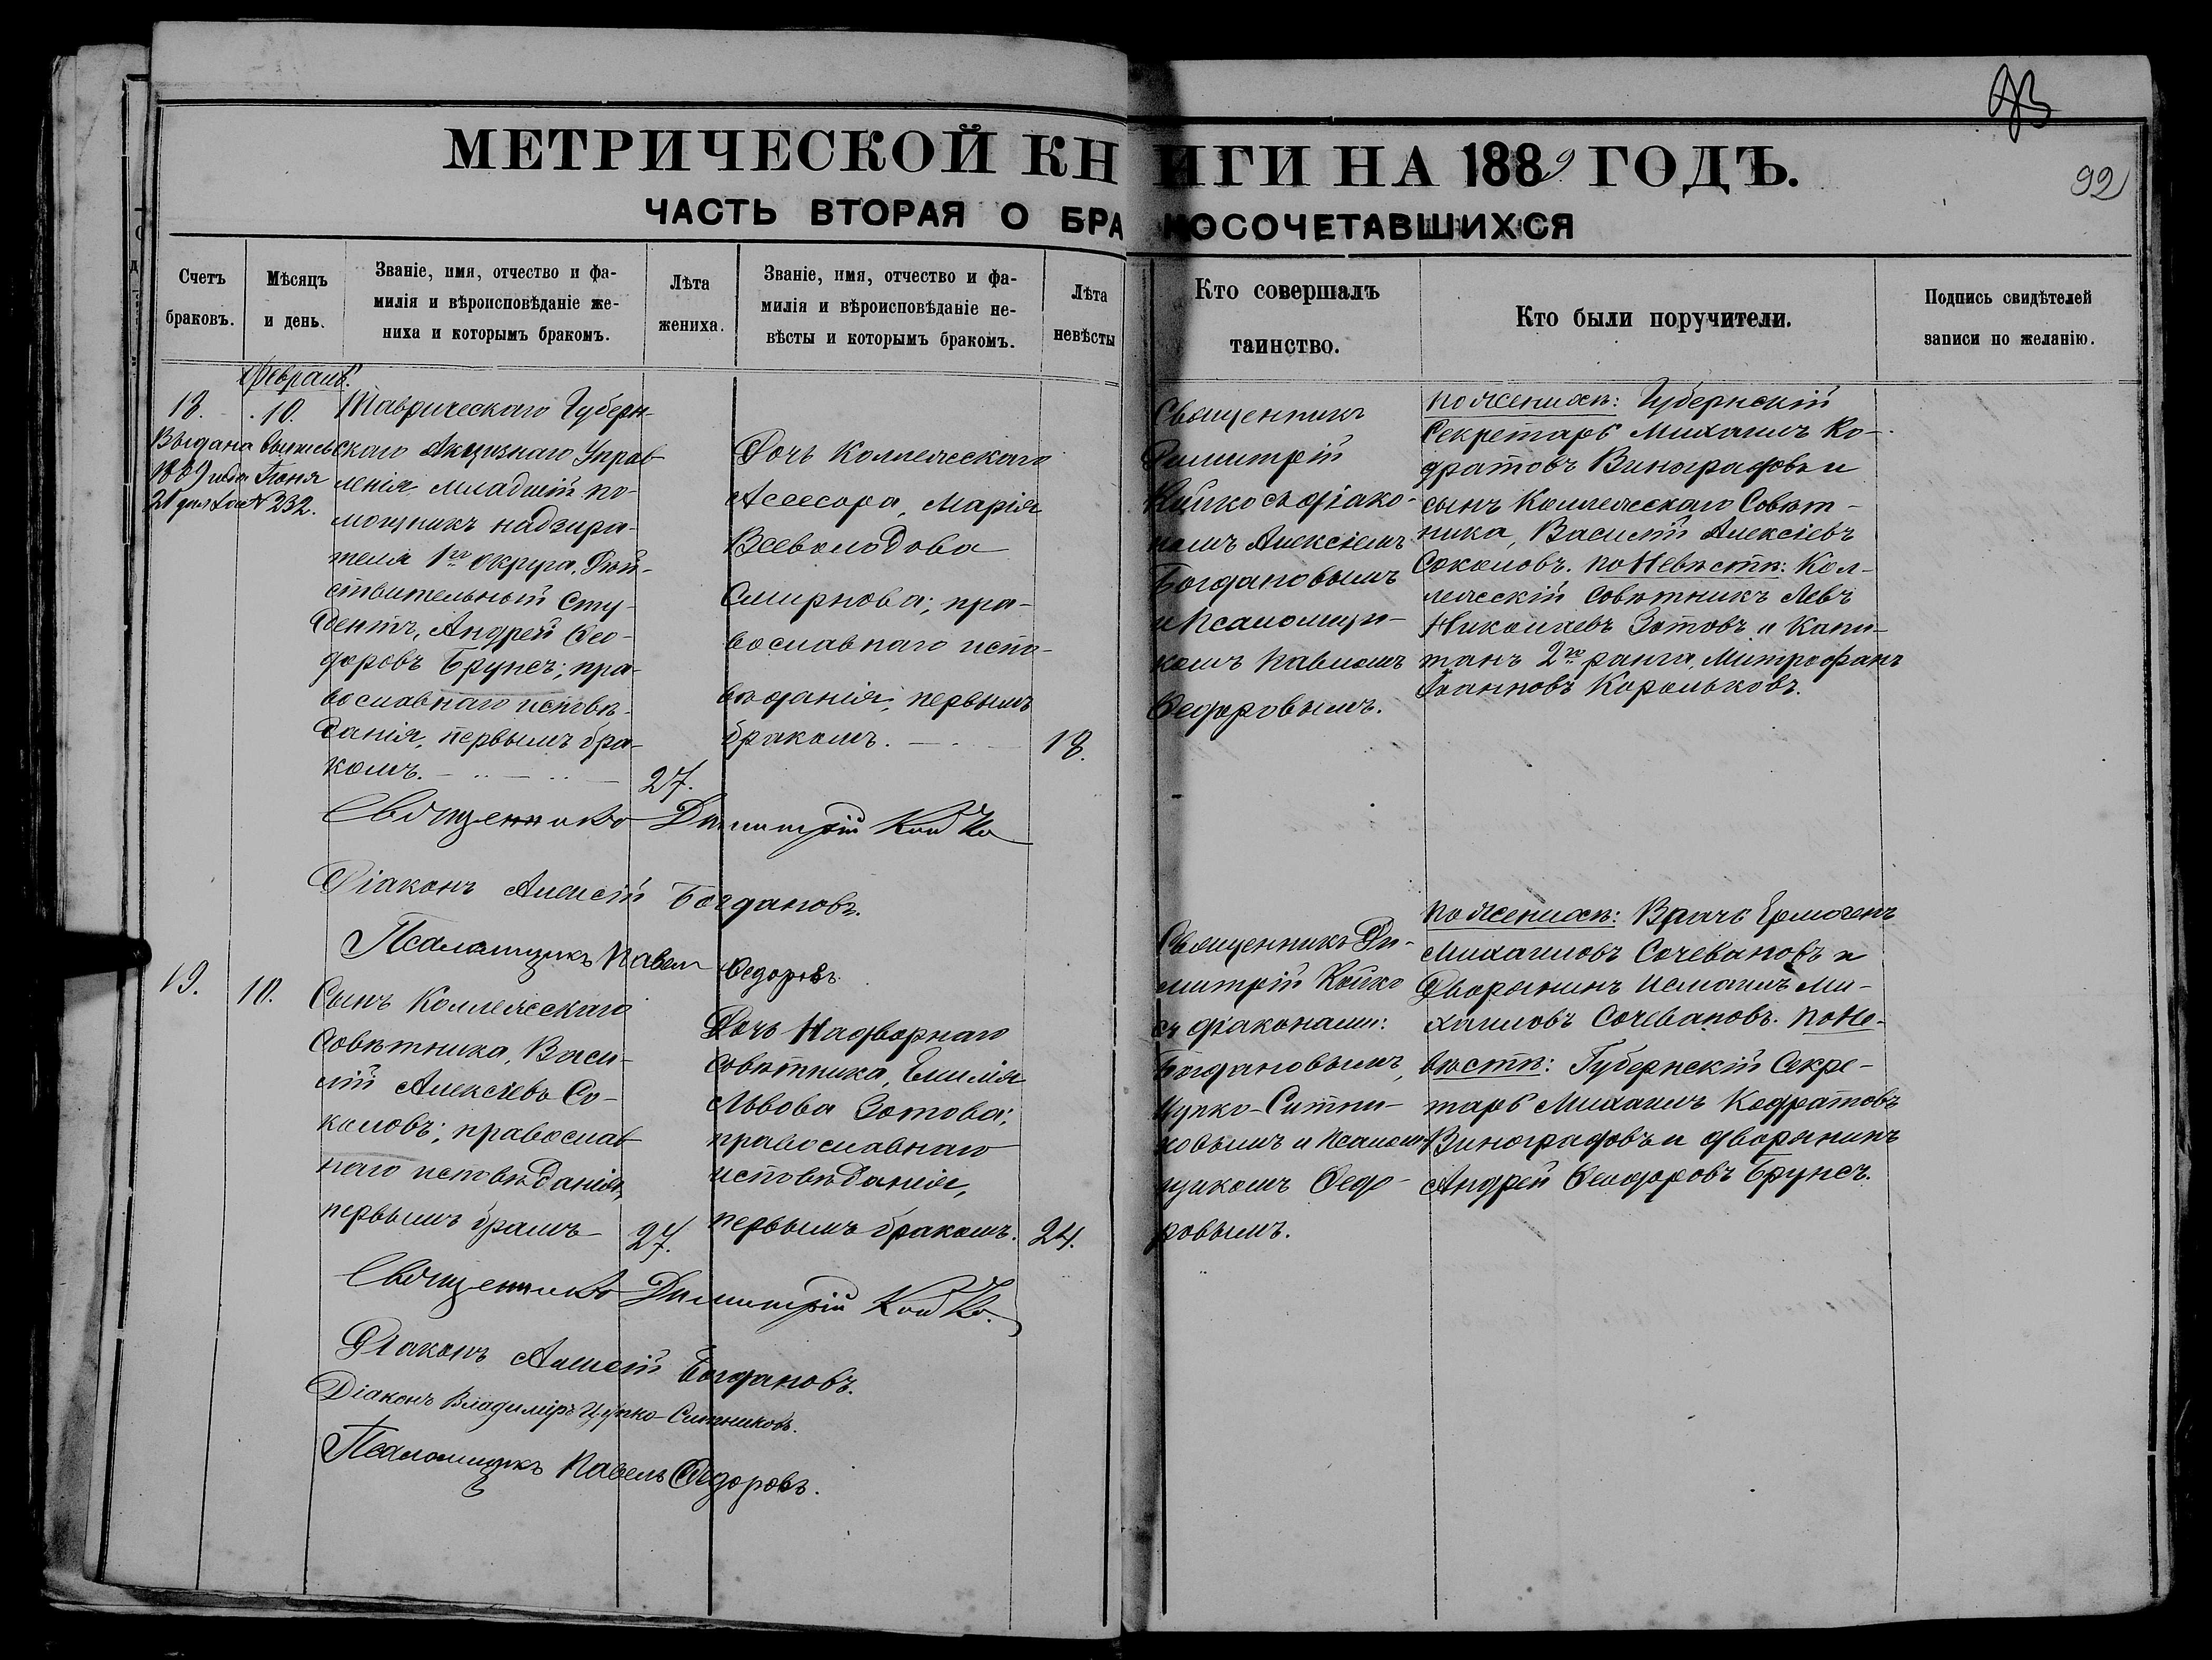 93
МЕТРИЧЕСКОЙ КНИГИ НА 1889 ГОДЪ.
92
ЧАСТЬ ВТОРАЯ О БРАКОСОЧЕТАВШИХСЯ
Счетъ
браковъ.
Мѣсяцъ
и день.
Званіе, имя, отчество и фа-
милія и вѣроисповѣданіе же-
ниха и которымъ бракомъ.
Лѣта
жениха.
Званіе, имя, отчество и фа-
милія и вѣроисповѣданіе не-
вѣсты и которымъ бракомъ.
Лѣта
невѣсты
Кто совершалъ
таинство.
Кто были поручители.
Подпись свидѣтелей
записи по желанію.
Февраль.
18.
10.
Выдана выпись
1889 года Іюня
21 дня за № 232.
Таврическаго Губерн-
скаго Акцизнаго Управ-
ленія младшій по-
мощникъ надзира-
теля 1го округа, Дѣй-
ствительный Сту-
дентъ, Андрей Ѳео-
доровъ Брунсъ; пра-
вославнаго исповѣ-
данія, первымъ бра-
комъ.
27.
Дочь Коллежскаго
Ассесора, Марія
Всеволодова
Смирнова; пра-
вославнаго испо-
вѣданія, первымъ
бракомъ.
18.
Священникъ
Димитрій
Койко съ діако-
номъ Алексіемъ
Богдановымъ
и Псаломщи-
комъ Павломъ
Ѳедоровымъ.
по женихѣ: Губернскій
Секретарь Михаилъ Ко-
дратовъ Виноградовъ и
сынъ Коллежскаго Совѣт-
ника, Василій Алексіевъ
Соколовъ. по Невѣстѣ: Кол-
лежскій Совѣтникъ Левъ
Николаевъ Зотовъ и Капи-
танъ 2го ранга, Митрофанъ
Іоанновъ Корольковъ.
Священникъ Димитрій Койко
Діаконъ Алексій Богдановъ.
Псаломщикъ Павелъ Ѳедоровъ.
19.
10.
Сынъ Коллежскаго
Совѣтника, Васи-
лій Алексіевъ Со-
коловъ; православ-
наго исповѣданія,
первымъ бракомъ
27.
Дочь Надворнаго
Совѣтника, Емилія
Львова Зотова;
православнаго
исповѣданія,
первымъ бракомъ.
24.
Священникъ Ди-
митрій Койко
съ діаконами:
Богдановымъ,
Цупко-Ситни-
ковымъ и Псалом-
щикомъ Ѳедо-
ровымъ.
по женихѣ: Врачъ Ермогенъ
Михаиловъ Сочевановъ и
Дворянинъ Измаилъ Ми-
хаиловъ Сочевановъ. по Не-
вѣстѣ: Губернскій Секре-
тарь Михаилъ Кодратовъ
Виноградовъ и дворянинъ
Андрей Ѳеодоровъ Брунсъ.
Священникъ Димитрій Койко.
Діаконъ Алексій Богдановъ.
Діаконъ Владиміръ Цупко-Ситниковъ.
Псаломщикъ Павелъ Ѳедоровъ.